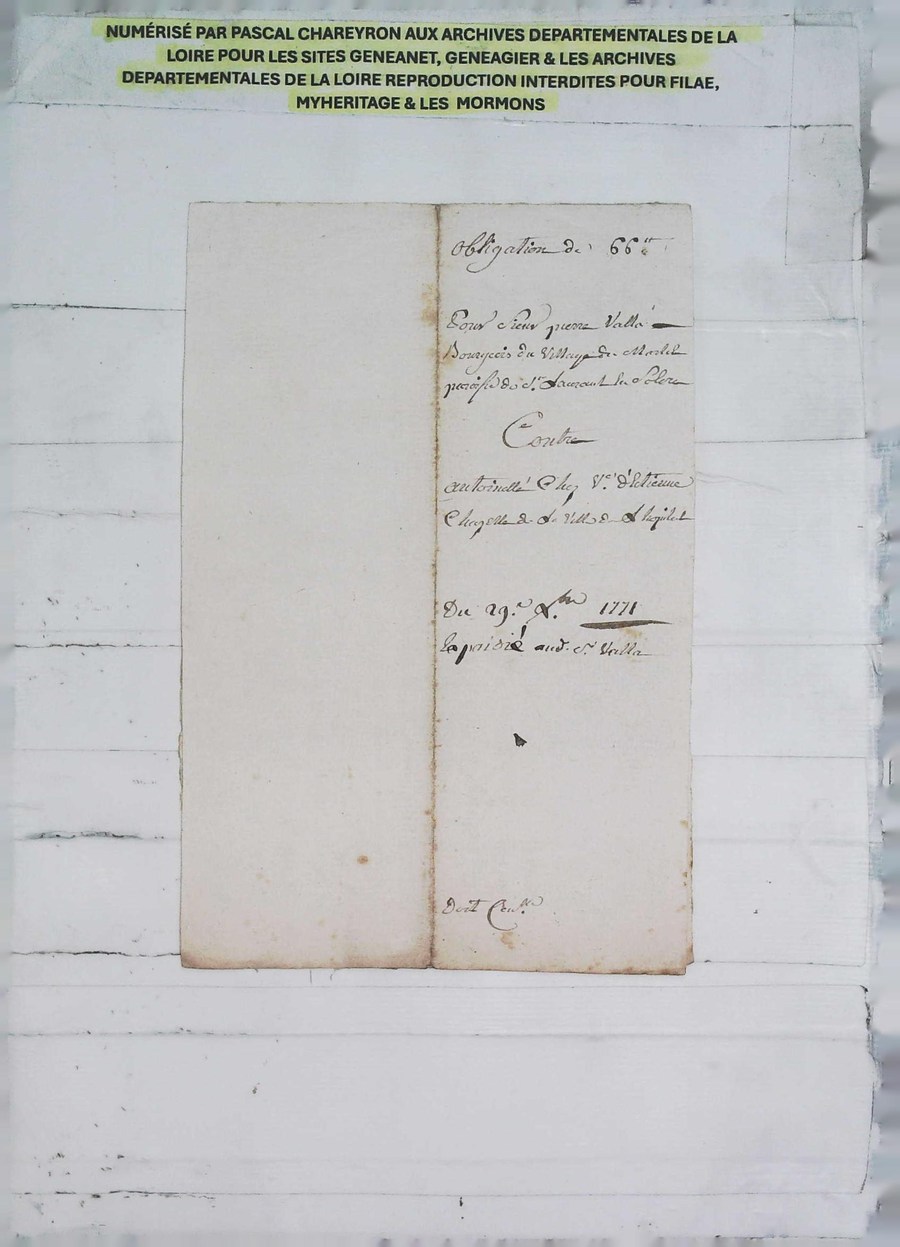 NUMÉRISÉ PAR PASCAL CHAREYRON AUX ARCHIVES DEPARTEMENTALES DE LA
LOIRE POUR LES SITES GENEANET, GENEAGIER & LES ARCHIVES
DEPARTEMENTALES DE LA LOIRE REPRODUCTION INTERDITES POUR FILAE,
MYHERITAGE & LES MORMONS
Obligation de 66
Pour Sieur pierre Valla
Bourgeois du Village de
paroisse de St. Laurent la Solere
Contre
antoinette Chez Ve. d'Etienne
Chazelle de la Ville de
Du 29e. 1771
aud. Sr. Valla
Doit